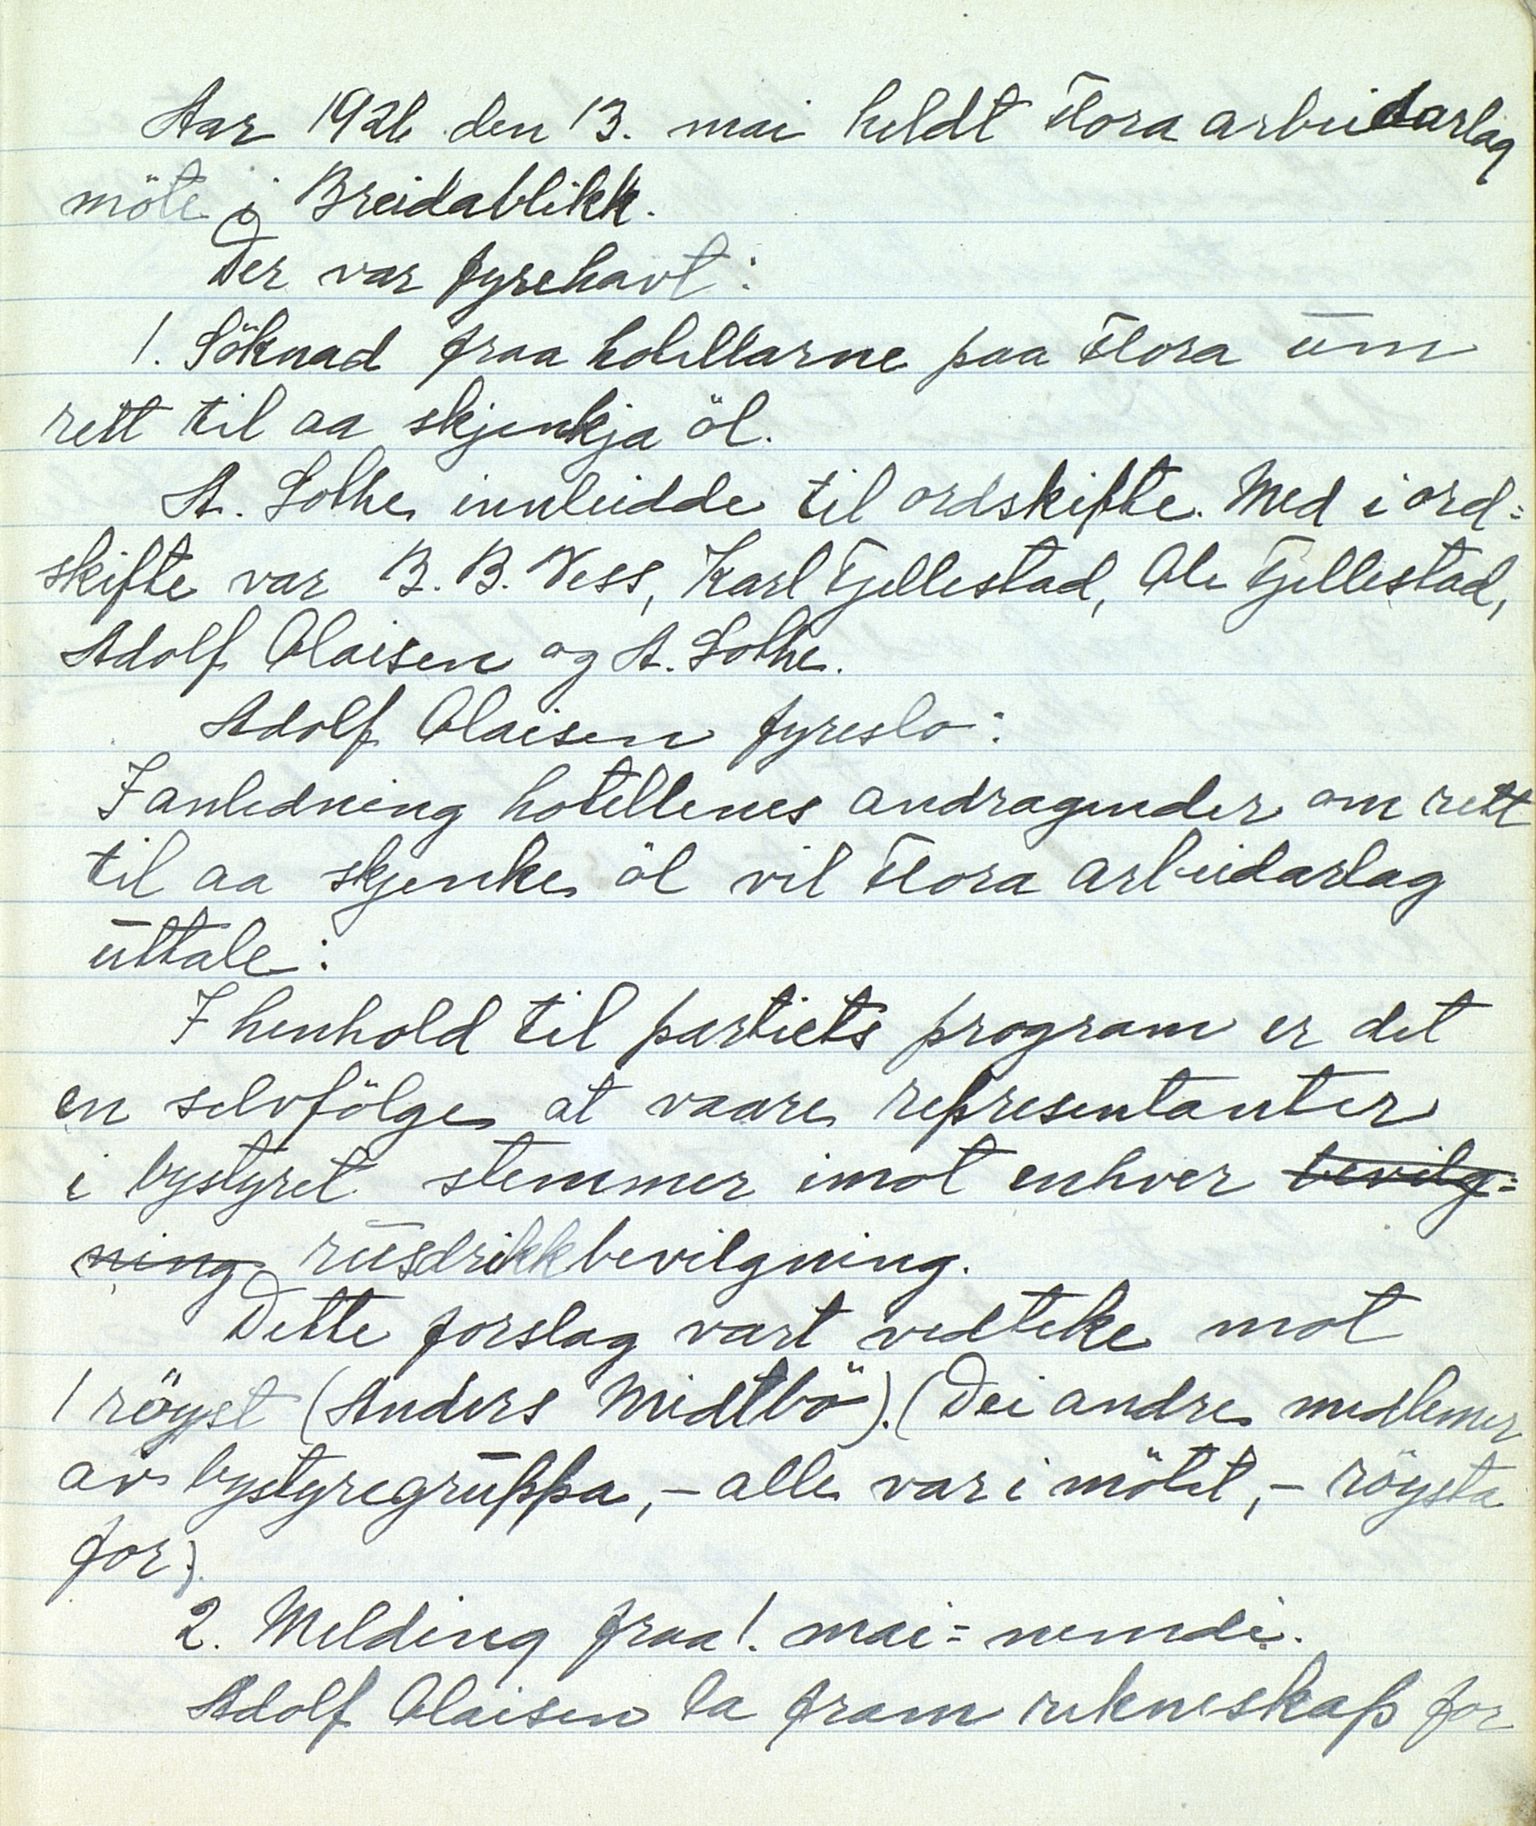 Aar 1926 den 13. mai heldt Flora arbeidarlag
möte i Breidablikk.
Der var fyrehavt:
1. Söknad fraa hotellarne paa Flora um
rett til aa skjenkja öl.
A. Solhe innleidde til ordskifte. Med i ord=
skifte var B. B. Ness, Karl Fjellestad, Ole Fjellestad,
Adolf Olaisen og A. Solhe.
Adolf Olaisen fyreslo:
I anledning hotellenes andragender om rett
til aa skjenke öl vil Flora arbeidarlag
uttale:
I henhold til partiets program er det
en selvfölge at vaare representanter
i bystyret stemmer imot enhver bevilg=
ning rusdrikkbevilgning.
Dette forslag vart vedteke mot
1 röyst (Anders Midtbö). (Dei andre medlemer
av bystyregruppa, - alle var i mötet, - röysta
for).
2. Melding fraa 1. mai=nemdi.
Adolf Olaisen la fram rekneskap for